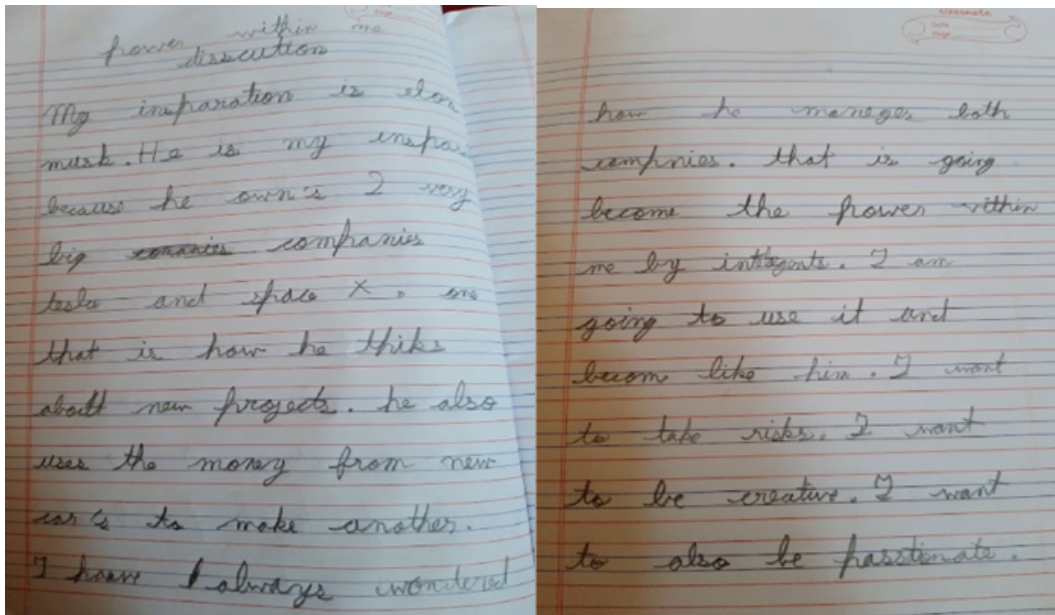 power within me
disscution
My insparation is elon
musk. He is my inspa
because he own's 2 very
big companies
tesla and space X. one
that is how he thiks
aboutt new projects. he also
uses the money from new
car's to make another.
I have always wondered
classmate
Date
Page
how he maneges both
compnies. that is going
become the power within
me by . I am
going to use it and
becom like him. I want
to take risks. I want
to be creative. I want
to also be passtionate.